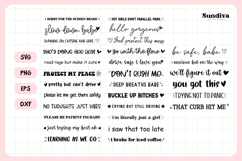 Sundiva
SVG
PNG
EPS
DXF
* SORRY FOR THE SCHOOL ROAD *
slow down babe
RUNNING ON CAFFEINE AND HOPE
road rage but make it cute
PROTECT MY PEACE
pretty but can't drive
please let me get there safely
NO THOUGHTS JUST VIBES
PLEASE BE PATIENT IM BABY
just trying my best ok
LEARNING AS WE GO
HOT GIRLS DON'T PARALLEL PARK
hello gorgeous
go with the flow
drive safe i love you
DON'T RUSH ME
DEEP BREATHS BABE
BUCKLE UP BITCHES
CRYING BUT STILL DRIVING
i'm literally just a girl
i saw that too late
i brake for iced coffee
be safe, babe
anxious but on the way
we'll figure it out
you got this
TRYING NOT TO PANIC
THAT CURB HIT ME